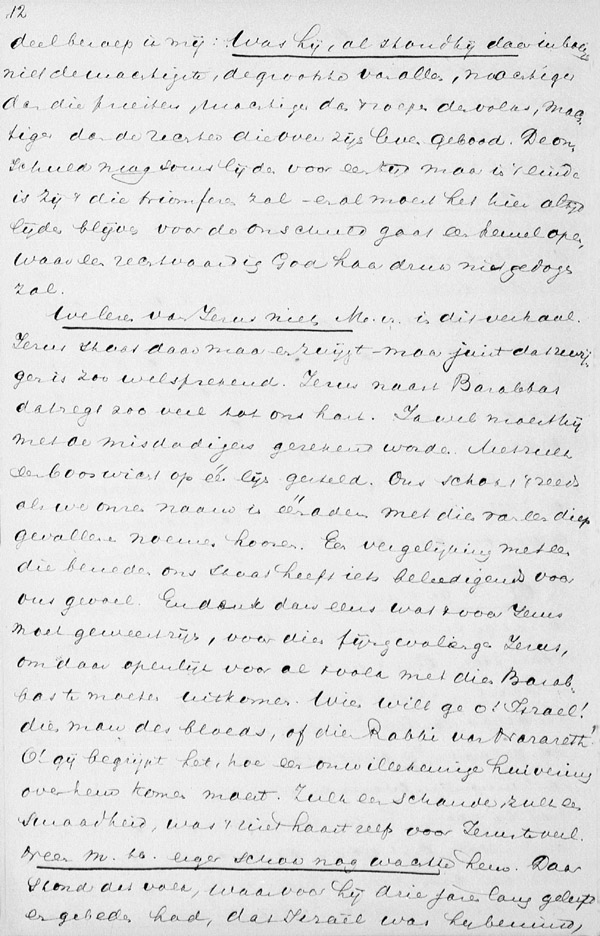 12
deel beroep is mij: Was hij, al stond hij daar in boei
niet de machtigste, de grootste van allen, machtiger
dan die priesters, machtiger dan 't roepen des volks, mach
tiger dan de rechter die over zijn leven gebood. De on
schuld mag soms lijden voor een tijd maar is 't einde
is zij 't die triomferen zal - en al moest het hier altijd
lijden blijven voor de onschuld gaat een hemel open,
waar een rechtvaardig God haar druk niet gedogen
zal.
We lezen van Jezus niets M. v. in dit verhaal.
Jezus staat daar maar en zwijgt - maar juist dat zwij
gen is zoo welsprekend. Jezus naast Barabbas
dat zegt zoo veel tot ons hart. Ja wel moest hij
met de misdadigers gerekend worden. Met zulk
een booswicht op één lijn gesteld. Ons schokt 't reeds
als we onzen naam in één adem met dien van een diep
gevallene noemen hooren. Een vergelijking met een
die beneden ons staat heeft iets beleedigends voor
ons gevoel. En denk dan eens wat 't voor Jezus
moet geweest zijn, voor dien fijngevoeligen Jezus,
om daar openlijk voor al 't volk met dien Barab-
bas te moeten uitkomen. Wien wilt ge o! Israel!
dien man des bloeds, of dien Rabbi van Nazareth!
O! gij begrijpt het, hoe een onwillekeurige huivering
over hem komen moest. Zulk een schande, zulk een
smaadheid, was 't niet haast zelf voor Jezus te veel.
Neen M. v. erger schok nog wachtte hem. Daar
stond dat volk, waarvoor hij drie jaren lang geleefd
en gebeden had, dat Israël was hij bemind,